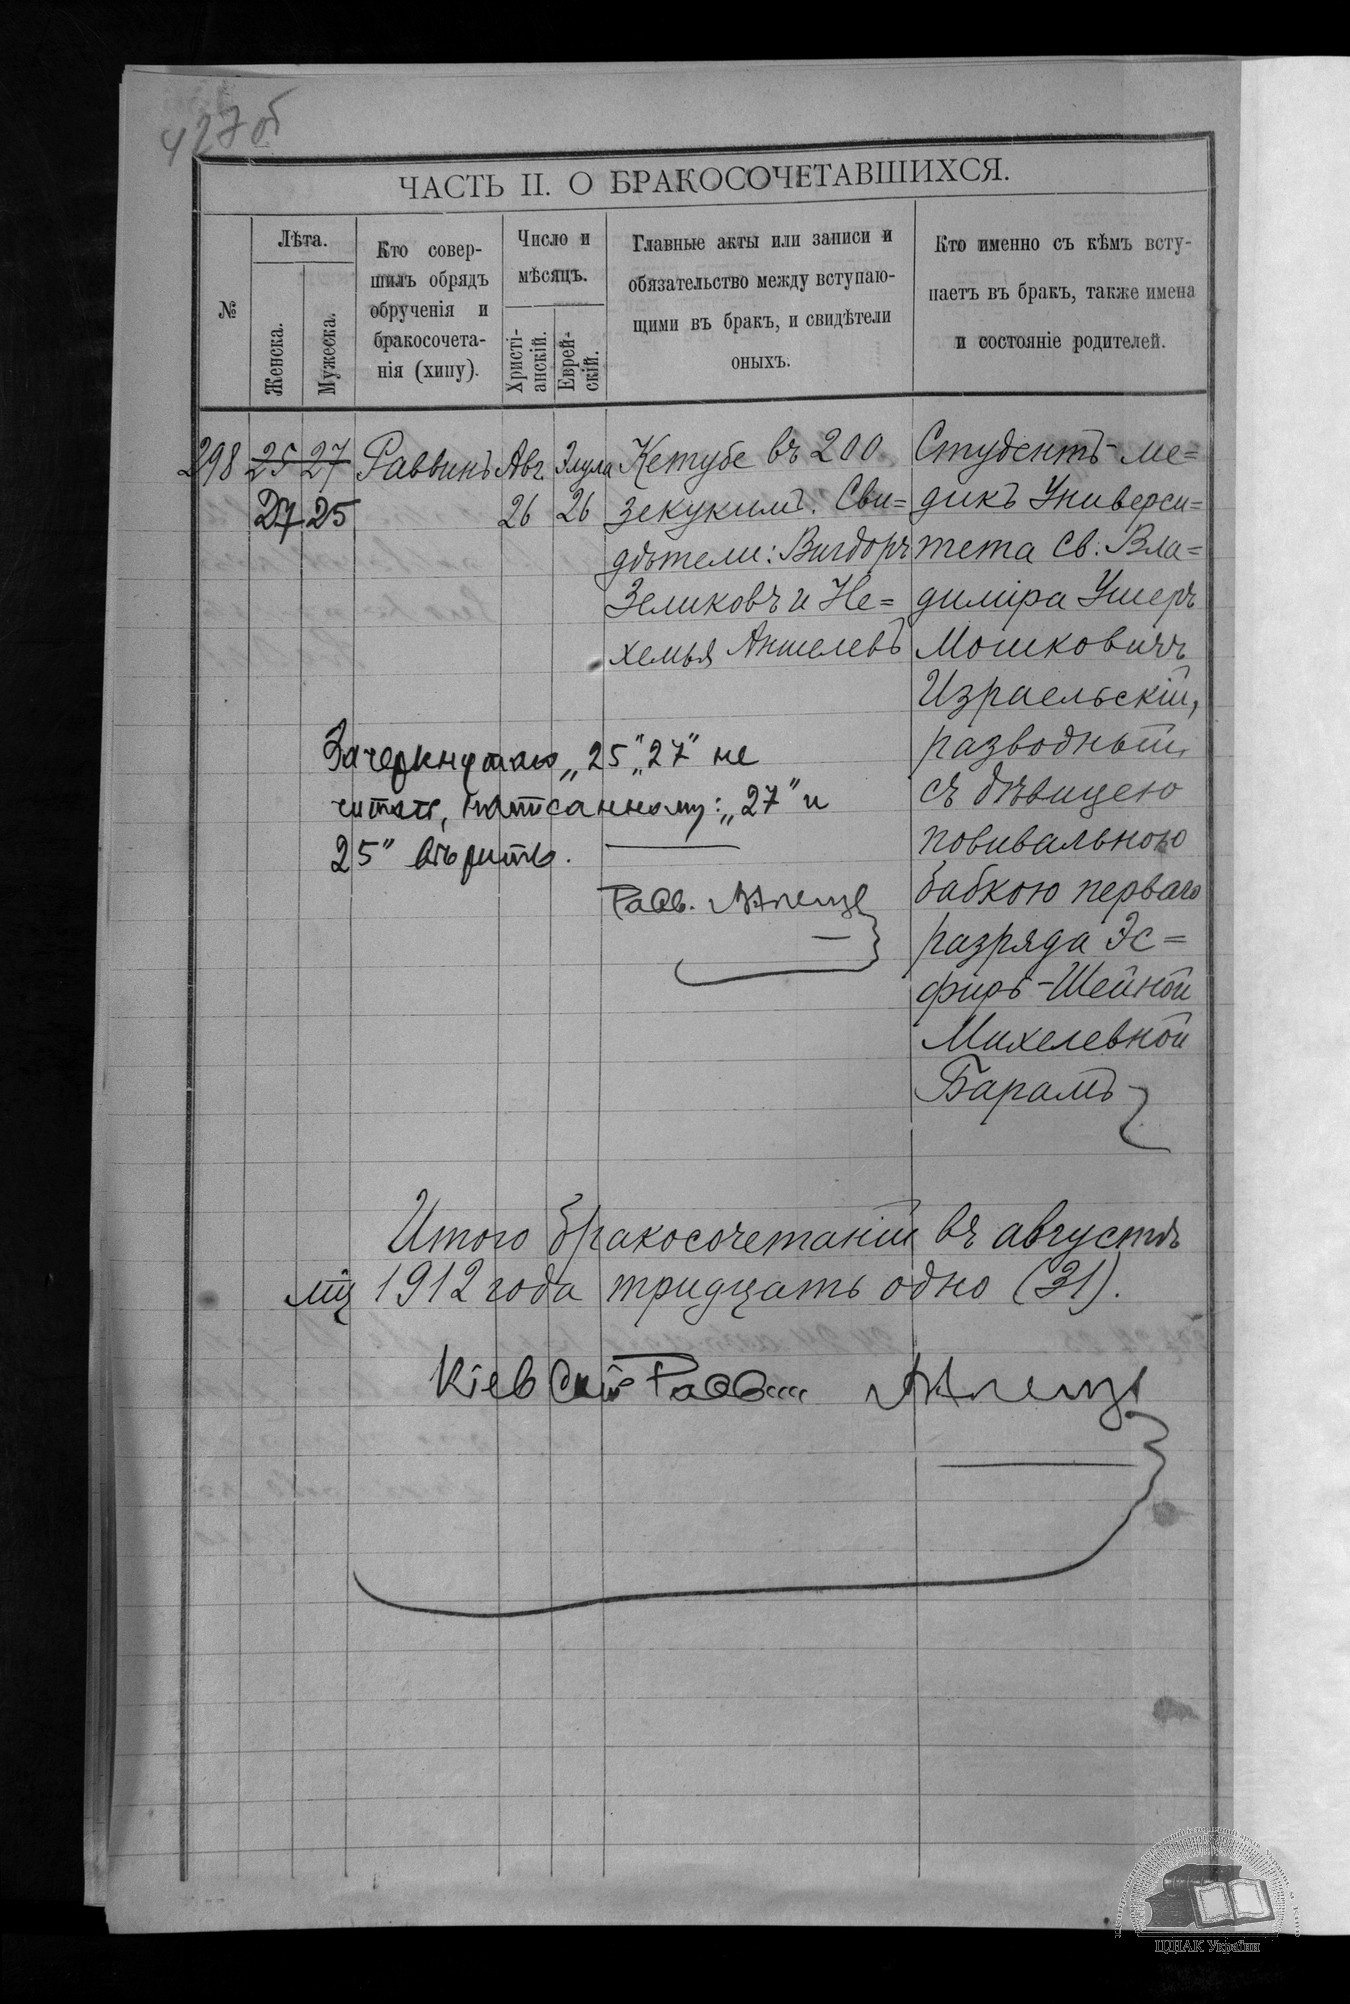 427 об
ЧАСТЬ II. О БРАКОСОЧЕТАВШИХСЯ.
№
Лѣта.
Женска.
Мужеска.
Кто совер-
шилъ обрядъ
обрученія и
бракосочета-
нія (хипу).
Число и
мѣсяцъ.
Христі-
анскій.
Еврей-
скій.
Главные акты или записи и
обязательство между вступаю-
щими въ бракъ, и свидѣтели
оныхъ.
Кто именно съ кѣмъ всту-
паетъ въ бракъ, также имена
и состояніе родителей.
298
25 27
27 25
Раввинъ
Авг.
26
Элула
26
Кетубе въ 200
зекукимъ. Сви=
дѣтели: Вигдоръ
Зеликовъ и Не=
хемья Аншелевъ
Студентъ-ме=
дикъ Универси=
тета Св. Вла=
диміра Ушеръ
Мошковичъ
Израельскій,
разводный,
съ дѣвицею
повивальною
бабкою перваго
разряда Эс=
фирь-Шейной
Михелевной
Барамъ
Зачеркнутаго „25", „27" не
читать, написанному: „27" и
25" вѣрить.
Равв.
Итого бракосочетаній въ августѣ
мц 1912 года тридцать одно (31).
Кіевскій Раввинъ
ЦДІАК України